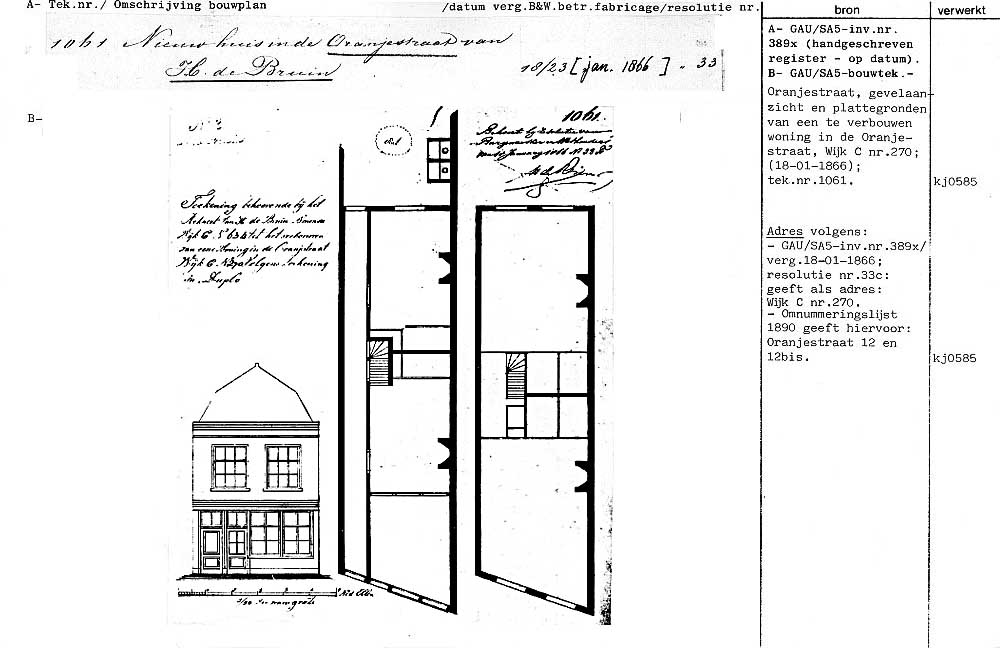 A- Tek.nr./ Omschrijving bouwplan /datum verg.B&W.betr.fabricage/resolutie nr.
bron
verwerkt
1061 Nieuw huis in de Oranjestraat van
H. de Bruin 18/23 [jan. 1866] „ 33
B-
1061.
Teekening behoorende bij het
Wijk C
van eene Woning in de Oranjestraat
Wijk C. N 270 volgens teekening
in Duplo
Ned Ellen
A- GAU/SA5-inv.nr.
389x (handgeschreven
register - op datum).
B- GAU/SA5-bouwtek.-
Oranjestraat, gevelaan-
zicht en plattegronden
van een te verbouwen
woning in de Oranje-
straat, Wijk C nr.270;
(18-01-1866);
tek.nr.1061.
kj0585
Adres volgens:
- GAU/SA5-inv.nr.389x/
verg.18-01-1866;
resolutie nr.33c:
geeft als adres:
Wijk C nr.270.
- Omnummeringslijst
1890 geeft hiervoor:
Oranjestraat 12 en
12bis.
kj0585